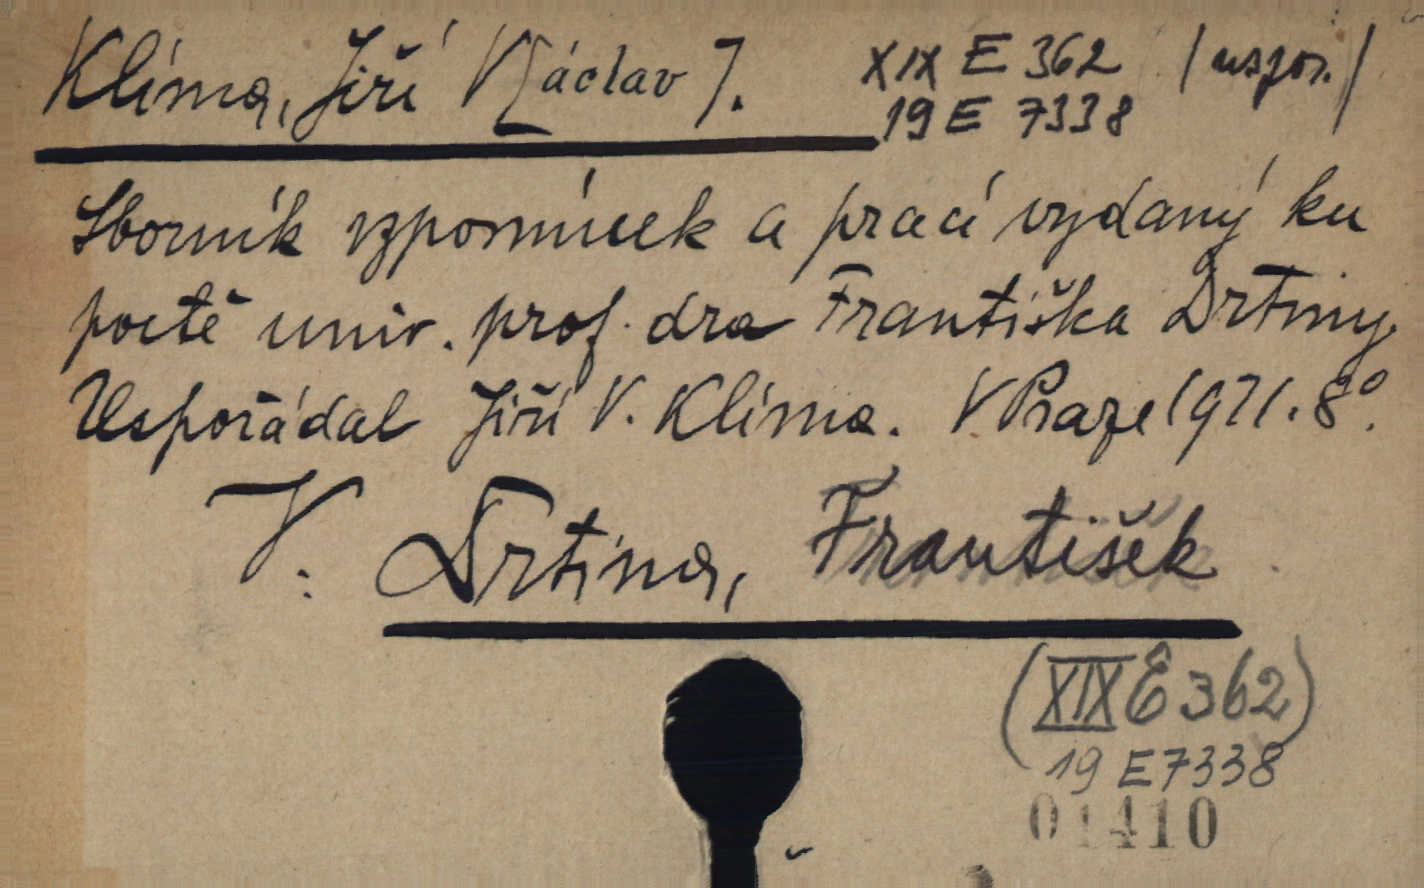 Klíma, Jiří V[áclav].
XIX E 362 /uspor./
19 E 7338
Sborník vzpomínek a prací vydaný ku
poctě univ. prof. dra Františka Drtiny.
Uspořádal Jiří V. Klíma. V Praze 1921. 8º.
V. Drtina, František
(XIX E 362)
19 E7338
01410